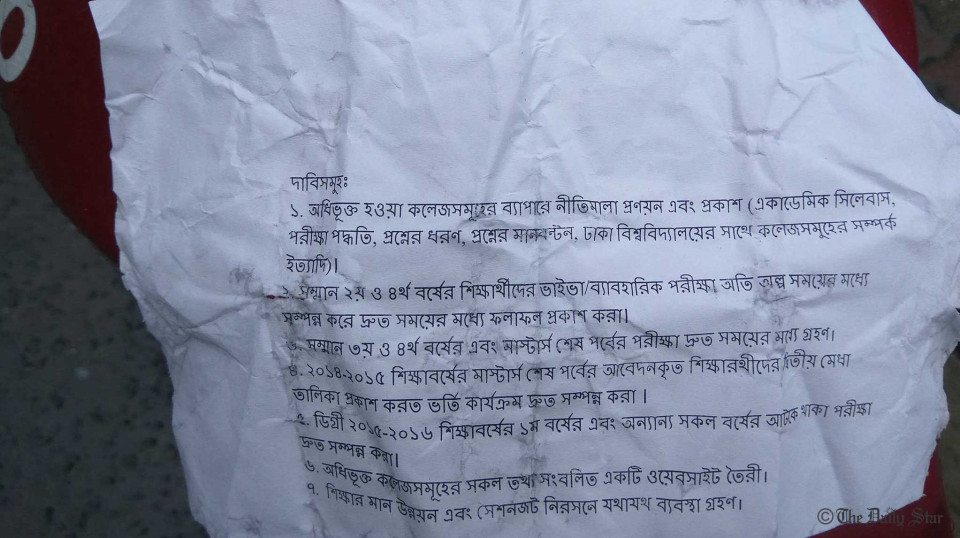 দাবিসমূহঃ
১. অধিভূক্ত হওয়া কলেজসমূহের ব্যাপারে নীতিমালা প্রনয়ন এবং প্রকাশ (একাডেমিক সিলেবাস,
পরীক্ষা পদ্ধতি, প্রশ্নের ধরণ, প্রশ্নের মানবন্টন, ঢাকা বিশ্ববিদ্যালয়ের সাথে কলেজসমূহের সম্পর্ক
ইত্যাদি)।
২. সম্মান ২য় ও ৪র্থ বর্ষের শিক্ষার্থীদের ভাইভা/ব্যাবহারিক পরীক্ষা অতি অল্প সময়ের মধ্যে
সম্পন্ন করে দ্রুত সময়ের মধ্যে ফলাফল প্রকাশ করা।।
৩. সম্মান ৩য় ও ৪র্থ বর্ষের এবং মাস্টার্স শেষ পর্বের পরীক্ষা দ্রুত সময়ের মধ্যে গ্রহন।
৪. ২০১৪-২০১৫ শিক্ষাবর্ষের মাস্টার্স শেষ পর্বের আবেদনকৃত শিক্ষারর্থীদের দ্বিতীয় মেধা
তালিকা প্রকাশ করত ভর্তি কার্যক্রম দ্রুত সম্পন্ন করা ।
৫. ডিগ্রী ২০১৫-২০১৬ শিক্ষাবর্ষের ১ম বর্ষের এবং অন্যান্য সকল বর্ষের আটকে থাকা পরীক্ষা
দ্রুত সম্পন্ন করা।।
৬. অধিভূক্ত কলেজসমূহের সকল তথ্য সংবলিত একটি ওয়েবসাইট তৈরী।
৭. শিক্ষার মান উন্নয়ন এবং সেশনজট নিরসনে যথাযথ ব্যবস্থা গ্রহণ।
© The Daily Star